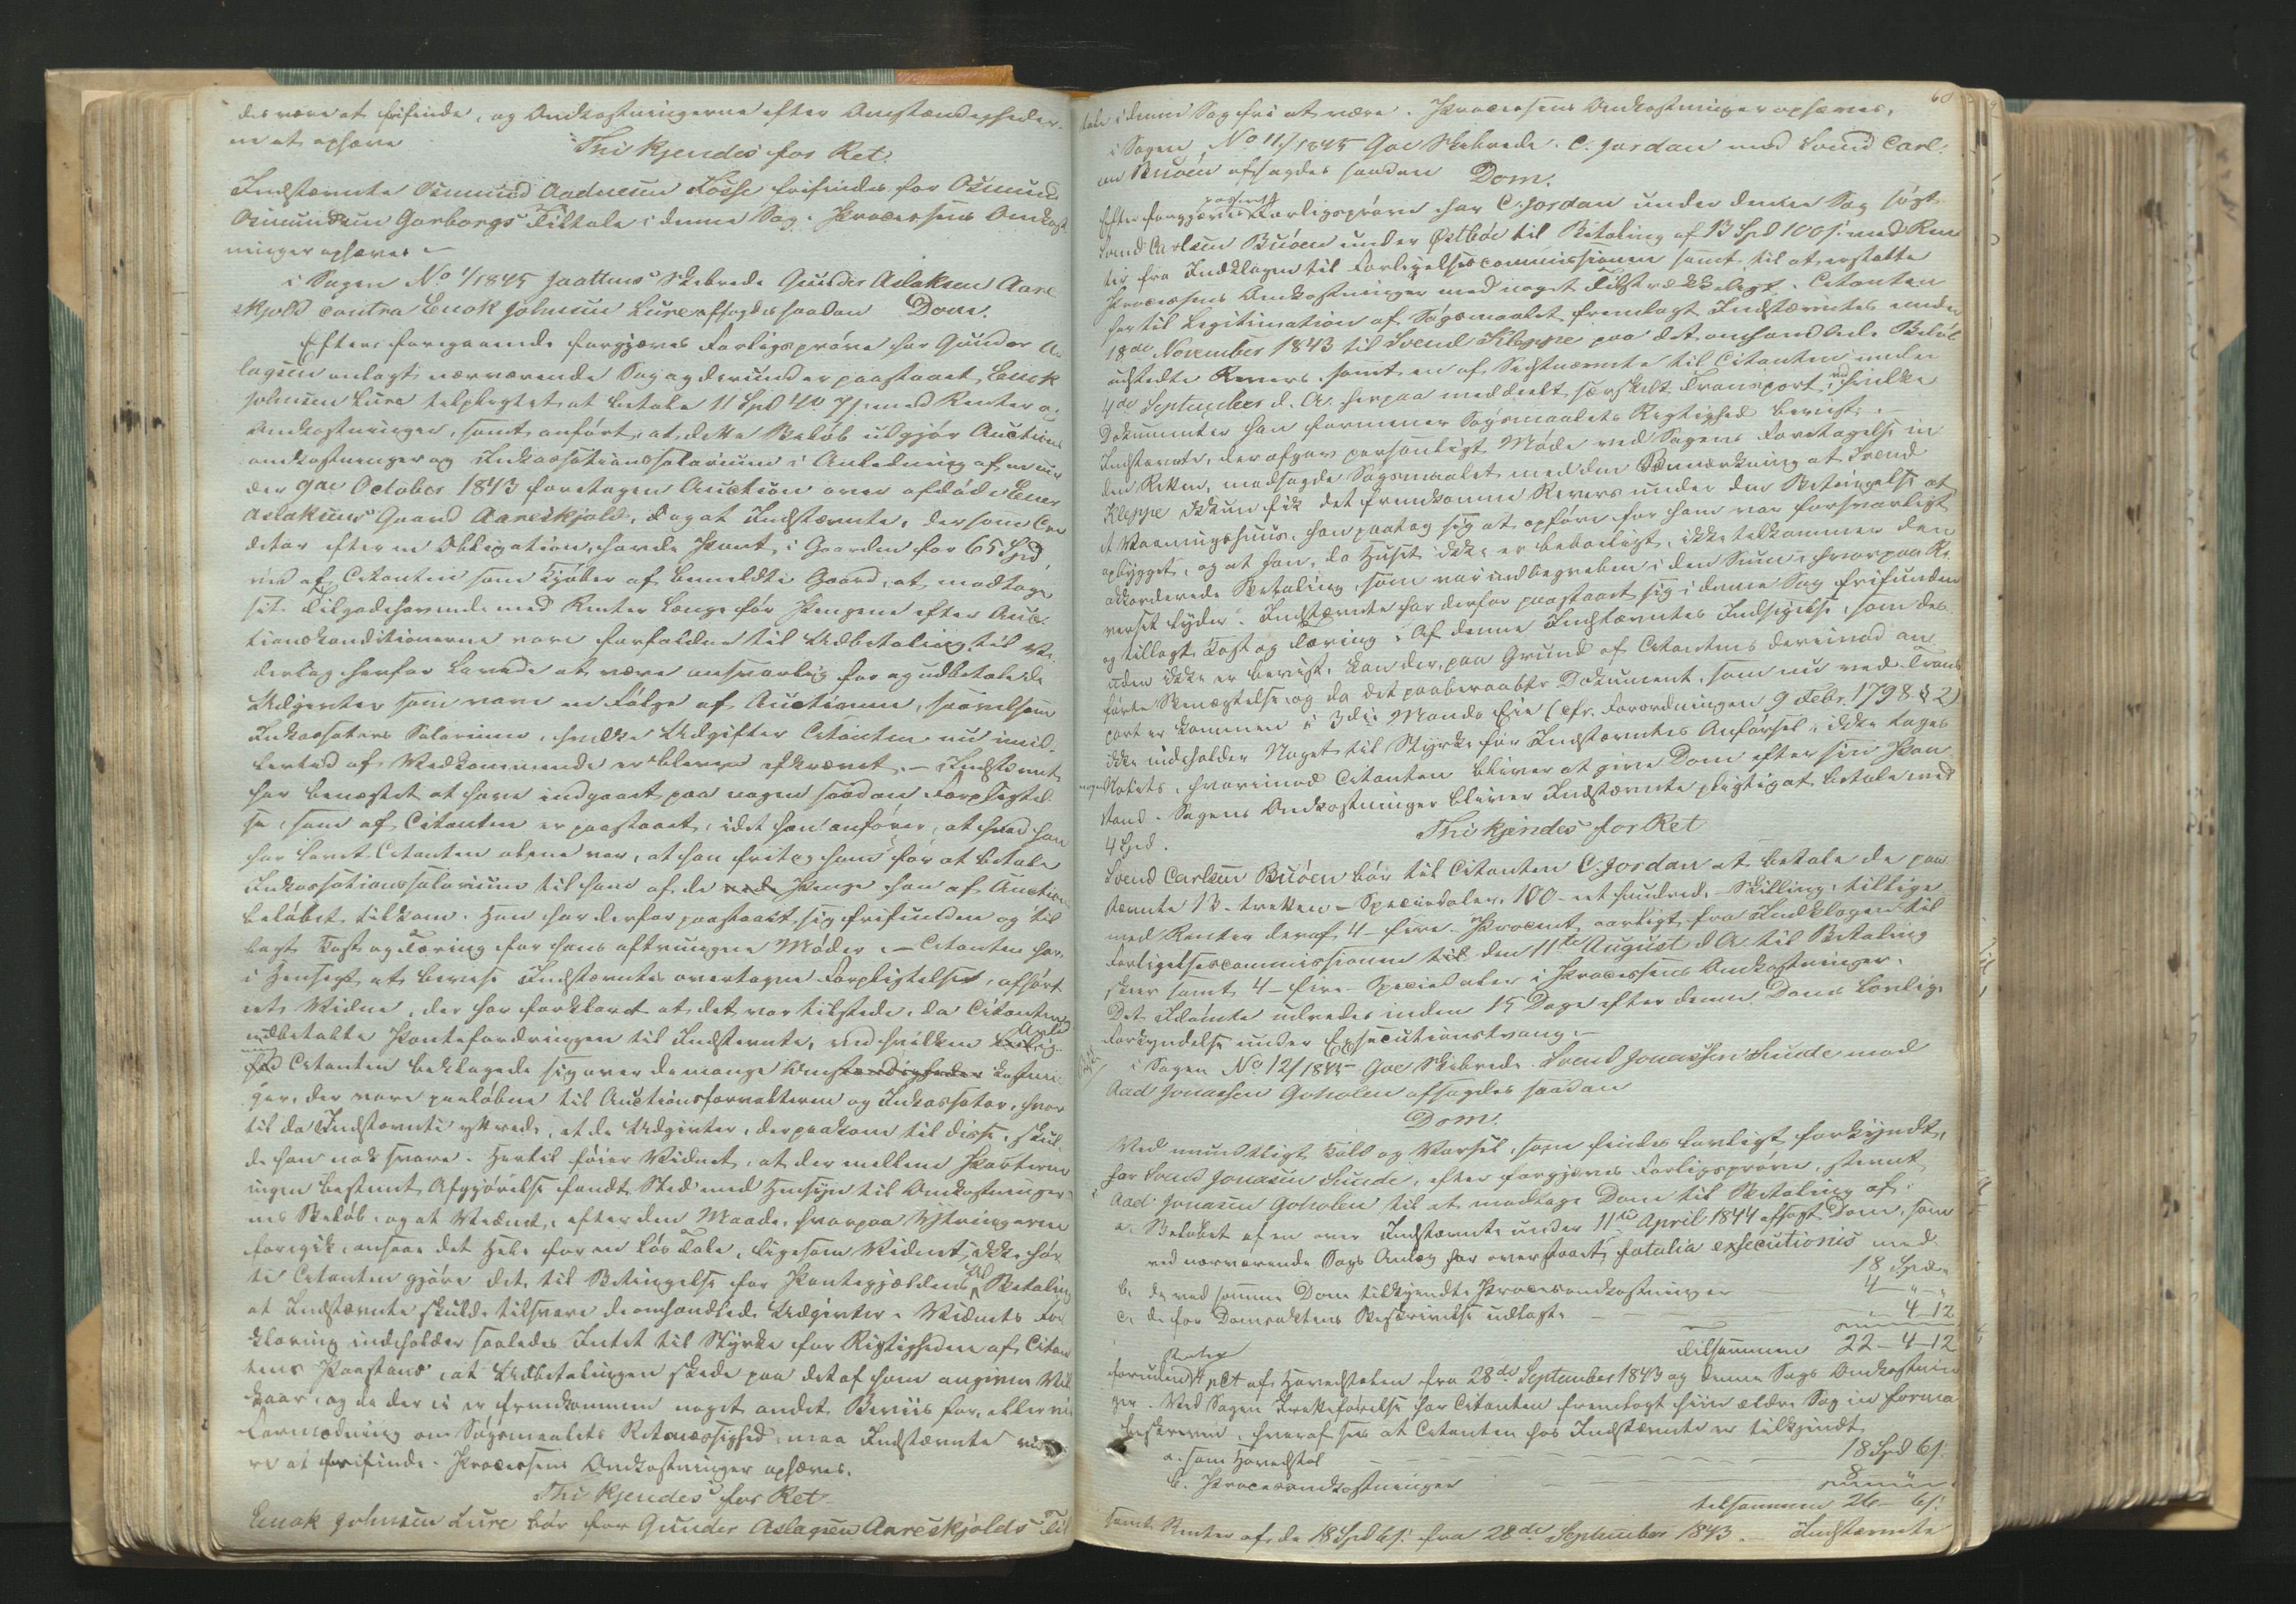 des være at frifinde, og Omkostningerne efter Omstændigheder-
ne at ophæve
Thi kjendes for Ret:
Indstævnte Osmund Aadnesen Fosse frifindes for Osmund
Osmundsen Garborgs Tiltale i denne Sag. Processens Omkost-
ninger ophæves.
i Sagen No 1/1845 Jaattens Skibrede Gunder Aslaksen Aare-
skjold contra Enok Johnsen Lure afsagdes saadan Dom.
Efter foregaaende forgjæves Forligsprøve har Gunder As-
lagsen anlagt nærværende Sag og derunder paastaaet Enok
Johnsen Lure tilpligtet at betale 11 Spd 4 7 s. med Renter og
Omkostninger, samt anført, at dette Beløb udgjør Auctions
omkostninger og Inkassationssalarium i Anledning af en un-
der 9de October 1843 foretagen Auction over afdøde
Aslaksens Gaard Aareskjold, og at Indstævnte, der som Cre-
ditor efter en Obligation, havde Pant i Gaarden for 65 Spd,
ved af Citanten som Kjøber af bemeldte Gaard, at modtage
sit Tilgodehavende med Renter længe før Pengene efter Auc-
tionskonditionerne vare forfaldne til Udbetaling, til Ve-
derlag herfor lovede at være ansvarlig for og udbetale de
Udgivter som vare en Følge af Auctionen, saavelsom
Inkassators Salarium, hvilke Udgifter Citanten nu imid-
lertid af Vedkommende er bleven afkrævet. – Indstævnte
har benægtet at have indgaaet paa nogen saadan Forpligtel-
se, som af Citanten er paastaaet, idet han anfører, at hvad han
har lovet Citanten alene var, at han fritog ham for at betale
Inkassationssalarium til ham af de Penge han af Auctions
beløbet tilkom. Han har derfor paastaaet sig frifunden og til-
lagt Kost og Tæring for hans aftvungne Møder. – Citanten har,
i Hensigt at bevise Indstævntes overtagne Forpligtelse, afhørt
et Vidne, der har forklaret at det var tilstede, da Citanten
udbetalte Pantefordringen til Indstævnte, ved hvilken Anled-
ning Citanten beklagede sig over de mange Omkostnin-
ger, der vare paaløbne til Auctionsforvalteren og Inkassator, hvor-
til da Indstævnte yttrede, at de Udgivter, der paakom til disse, skul-
de han nok svare. Hertil føier Vidnet, at der mellem Parterne
ingen bestemt Afgjørelse fandt Sted med Hensyn til Omkostninger-
nes Beløb, og at Vidnet, efter den Maade, hvorpaa Yttringerne
foregik, ansaae det Hele for en løs Tale, ligesom Vidnet ikke hør-
te Citanten gjøre det til Betingelse for Pantegjældens Betaling
at Indstævnte skulde tilsvare de omhandlede Udgivter. Vidnets For-
klaring indeholder saaledes Intet til Styrke for Rigtigheden af Citan-
tens Paastand, at Udbetalingen skede paa det af ham angivne Vil-
kaar, og da der ei er fremkommen noget andet Beviis for, eller
Formodning om Søgsmaalets Retmæssighed, maa Indstævnte
at frifinde. Processens Omkostninger ophæves.
Thi kjendes for Ret
Enok Johnsen Lure bør for Gunder Aslagsen Aareskjolds Til-
60
tale i denne Sag fri at være. Processens Omkostninger ophæves.
i Sagen No 11/1845 Goe Skibrede. C. Jordan mod Svend Carl-
sen Buøen afsagdes saadan Dom.
Efter forgjæves passeret Forligsprøve har C. Jordan under denne Sag søgt
Svend Carlsen Buøen under Østbøe til Betaling af 13 Spd 100 s. med Ren-
ter fra Indklagen til Forligelsescommissionen samt til at erstatte
Processens Omkostninger med noget Tilstrækkeligt. Citanten
har til Legitimation af Søgsmaalet fremlagt Indstævntes under
18de November 1843 til Svend Kleppe paa det omhandlede Beløb
udstedte Revers, samt en af Sidstnævnte til Citanten under
4de September d. A. herpaa meddeelt særskilt Transport, ved hvilke
Dokumenter han formener Søgsmaalets Rigtighed beviist. –
Indstævnte, der afgav personligt Møde ved Sagens Foretagelse in-
den Retten, modsagde Søgsmaalet med den Bemærkning at Svend
Kleppe ikkun fik det fremkomne Revers under den Betingelse at
et Vaaningshuus, han paatog sig at opføre for ham var forsvarligt
opbygget, og at han, da Huset ikke er beboeligt, ikke tilkommer den
akkorderede Betaling, som var indbegreben i den Sum, hvorpaa Re-
verset lyder. Indstævnte har derfor paastaaet sig i denne Sag frifunden
og tillagt Kost og Tæring. Af denne Indstævntes Indsigelse, som des-
uden ikke er bevist, kan der, paa Grund af Citantens derimod an-
førte Benægtelse og da det paaberaabte Dokument, som nu ved Trans-
port er kommen i 3die Mands Eie (cfr. Forordningen 9 Febr. 1798 § 2)
ikke indeholder Noget til Styrke for Indstævntes Anførsel, ikke tages
nogen Notits, hvorimod Citanten bliver at give Dom efter sin Paa-
stand. Sagens Omkostninger bliver Indstævnte pligtig at betale med
4 Spd.
Thi kjendes for Ret
Svend Carlsen Buøen bør til Citanten C. Jordan at betale de paa-
stævnte 13 – tretten – Speciedaler, 100 – et hundrede – Skilling, tillige
med Renter deraf 4 – fire – Procent aarligt fra Indklagen til
Forligelsescommissionen den 11te August d A. til Betaling
skeer samt 4 – fire – Speciedaler i Processens Omkostninger.
Det Idømte udredes inden 15 Dage efter denne Doms lovlige
Forkyndelse under Exsecutionstvang. –
i Sagen No 12/1845 Goe Skibrede. Svend Jonassen Lunde mod
Aad Jonassen Goholen afsagdes saadan
Dom.
Ved mundtligt Kald og Varsel, som findes lovligt forkyndt,
har Svend Jonasen Lunde, efter forgjæves Forligsprøve, stevnt
Aad Jonasen Goholen til at modtage Dom til Betaling af:
a. Beløbet af en over Indstævnte under 11te April 1844 afsagt Dom, som
ved nærværende Sags Anlæg har overstaaet fatalia exsecutionis med 18 Spd.
b. de ved samme Dom tilkjendte Procesomkostninger 4 – " – "
c. de for Domsaktens Beskrivelse udlagte – 4 – 12
Tilsammen 22 – 4 – 12
foruden Renter 4 pCt af Hovedstolen fra 28de September 1843 og denne Sags Omkostnin-
ger. Ved Sagens Iretteførelse har Citanten fremlagt hiin ældre Sag in forma
beskreven, hvoraf sees at Citanten hos Indstævnte er tilkjendt
a. som Hovedstol 18 Spd 6 s.
b. Procesomkostninger 8
tilsammen 26 – 6 s.
samt Renter af de 18 Spd 6 s. fra 28de September 1843. – Indstævnte